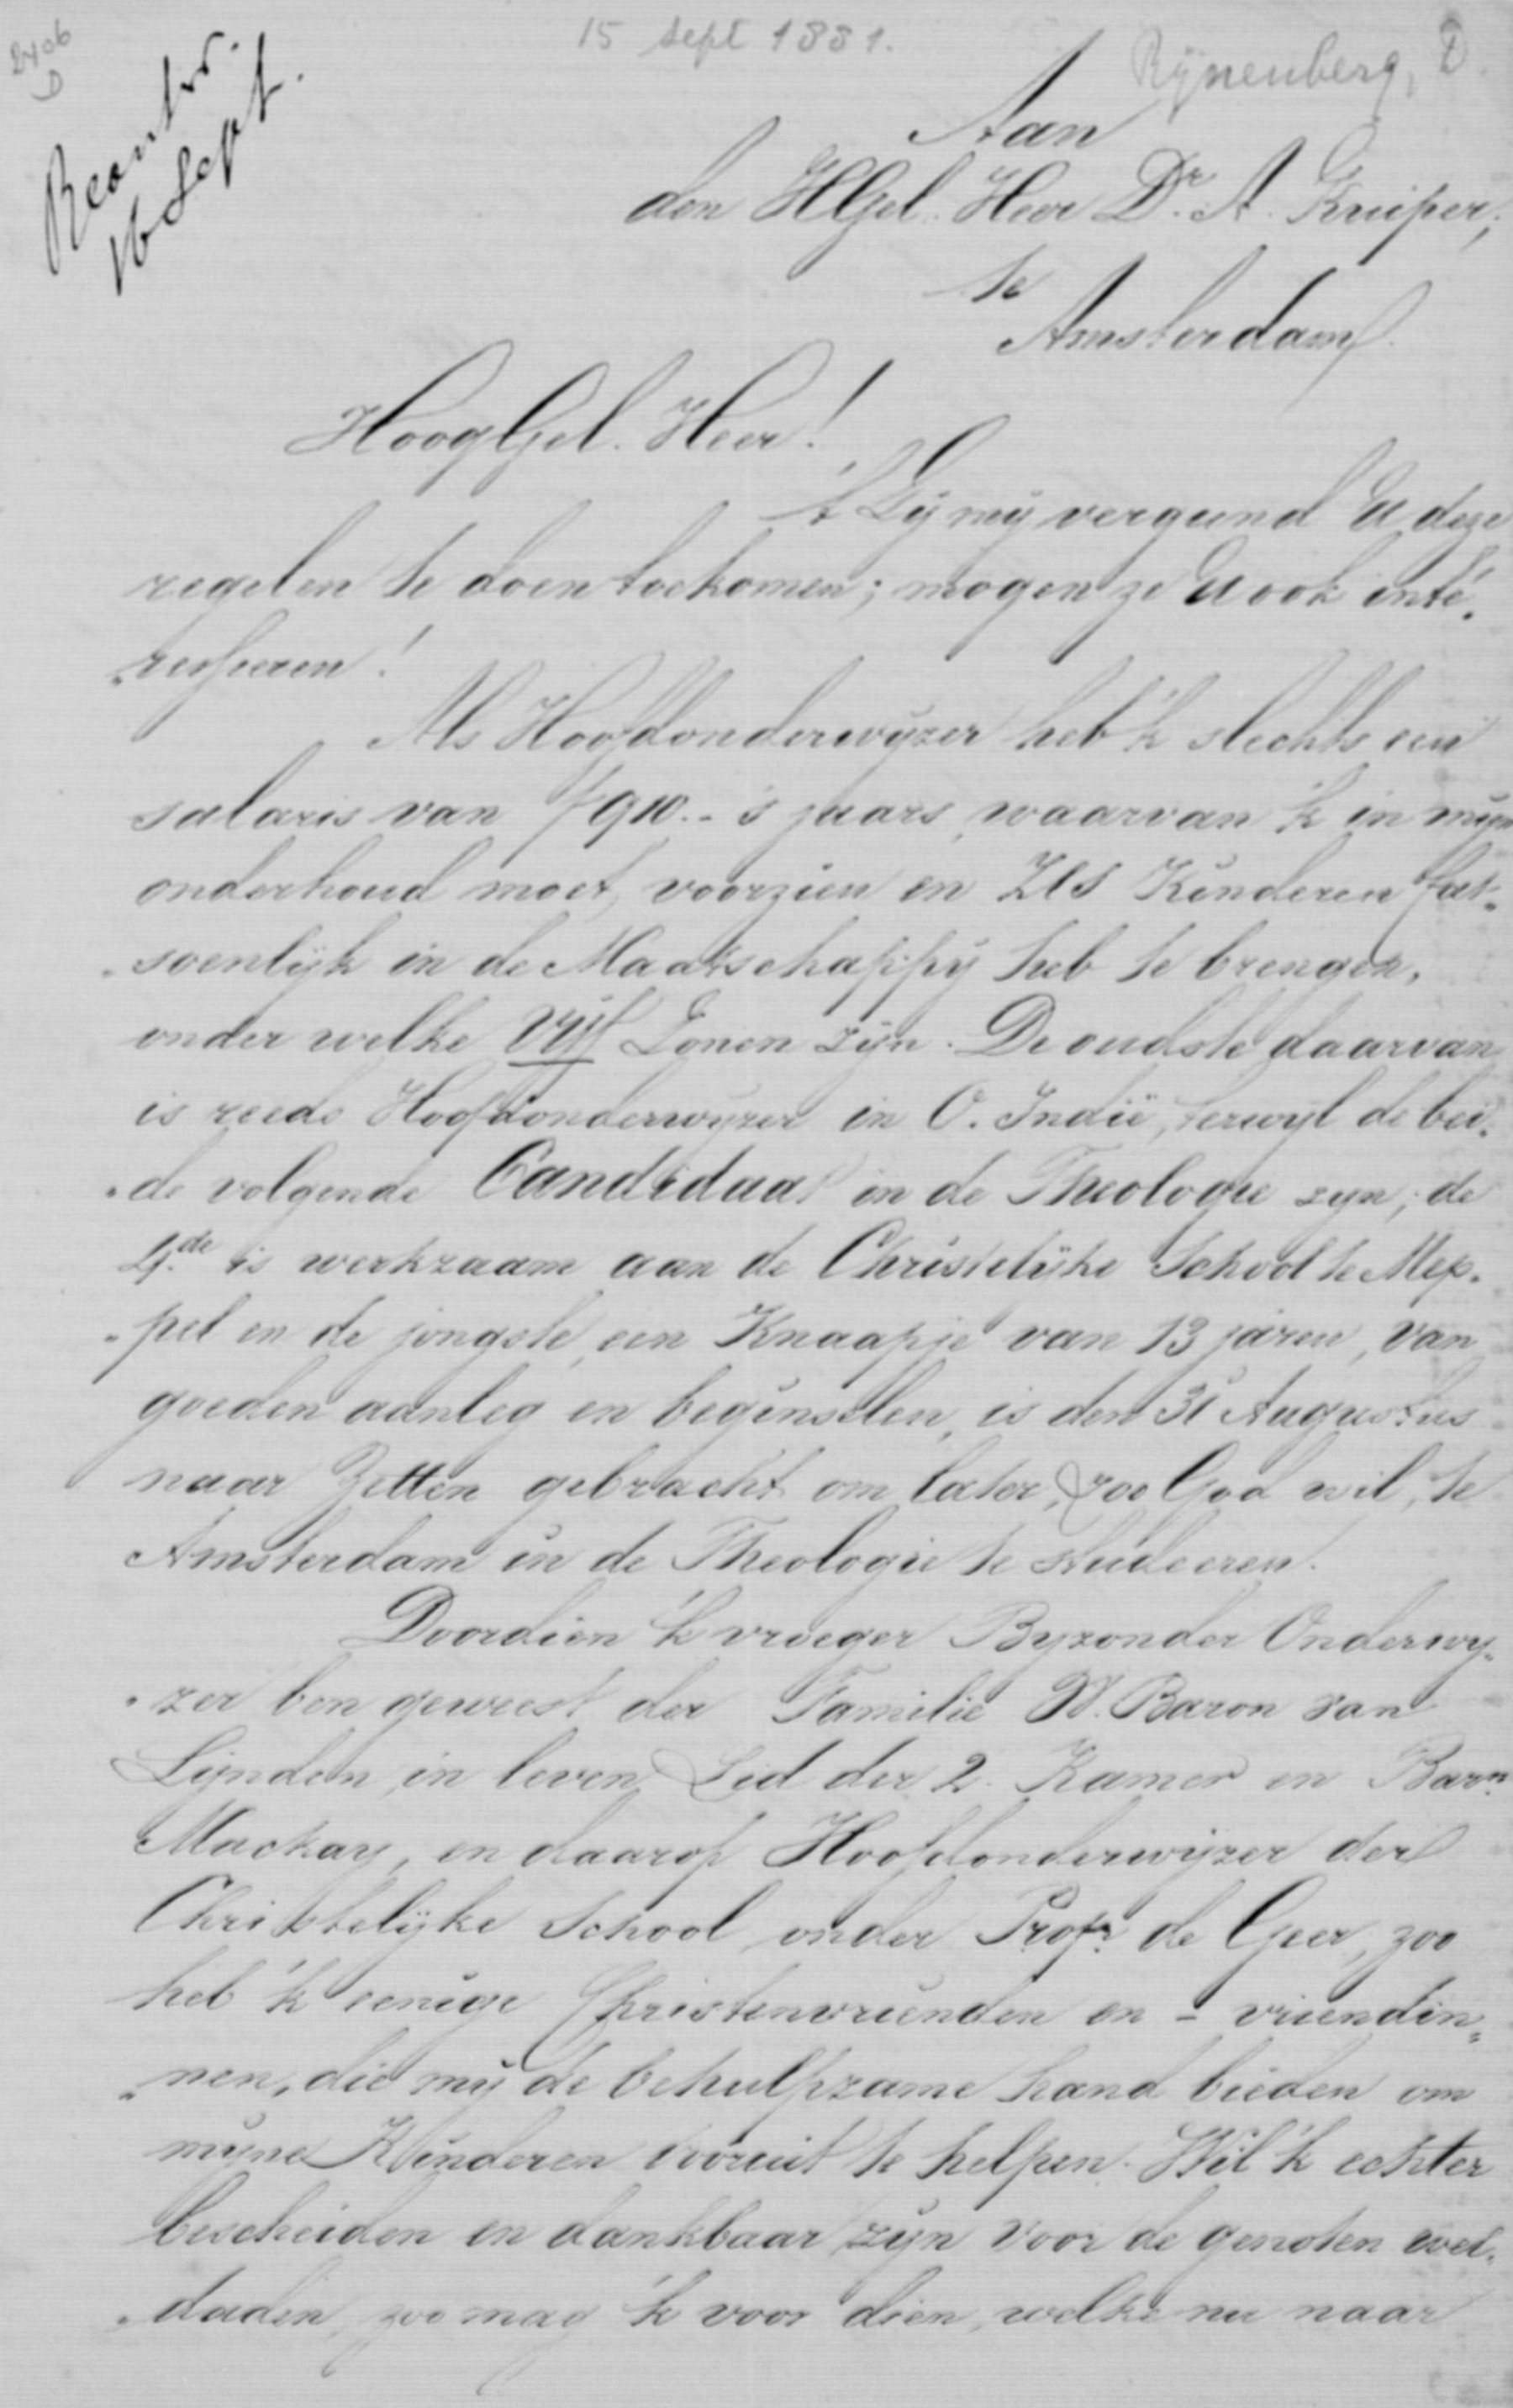 2406
D
15 sept 1881.
Rijnenberg, D.
Beantw.
16 Sept.
Aan
den HGel. Heer Dr. A. Kuiper,
te
Amsterdam.
HoogGel. Heer!
't Zij mij vergund U deze
regelen te doen toekomen; mogen ze U ook inté„
„resseeren!
Als Hoofdonderwijzer heb 'k slechts een
salaris van f 910.- 's jaars, waarvan 'k in mijn
onderhoud moet voorzien en Zes Kinderen fat„
„soenlijk in de Maatschappij heb te brengen,
onder welke Vijf Zonen zijn. De oudste daarvan
is reeds Hoofdonderwijzer in O. Indië, terwijl de bei„
„de volgende Candidaat in de Theologie zijn; de
4.de is werkzaam aan de Christelijke School te Mep„
„pel en de jongste, een Knaapje van 13 jaren, van
goeden aanleg en beginselen, is den 31 Augustus
naar Zetten gebracht om later, zoo God wil, te
Amsterdam in de Theologie te studeeren.
Doordien 'k vroeger Byzonder Onderwy„
„zer ben geweest der Familie W. Baron van
Lijnden, in leven Lid der 2. Kamer en Barn
Mackay, en daarop Hoofdonderwijzer der
Christelijke School onder Profr. de Geer, zoo
heb 'k eenige Christenvrienden en - vriendin„
„nen, die mij de behulpzame hand bieden om
mijne Kinderen vooruit te helpen. Wil 'k echter
bescheiden en dankbaar zijn voor de genoten wel„
„daden, zoo mag 'k voor dien, welke nu naar